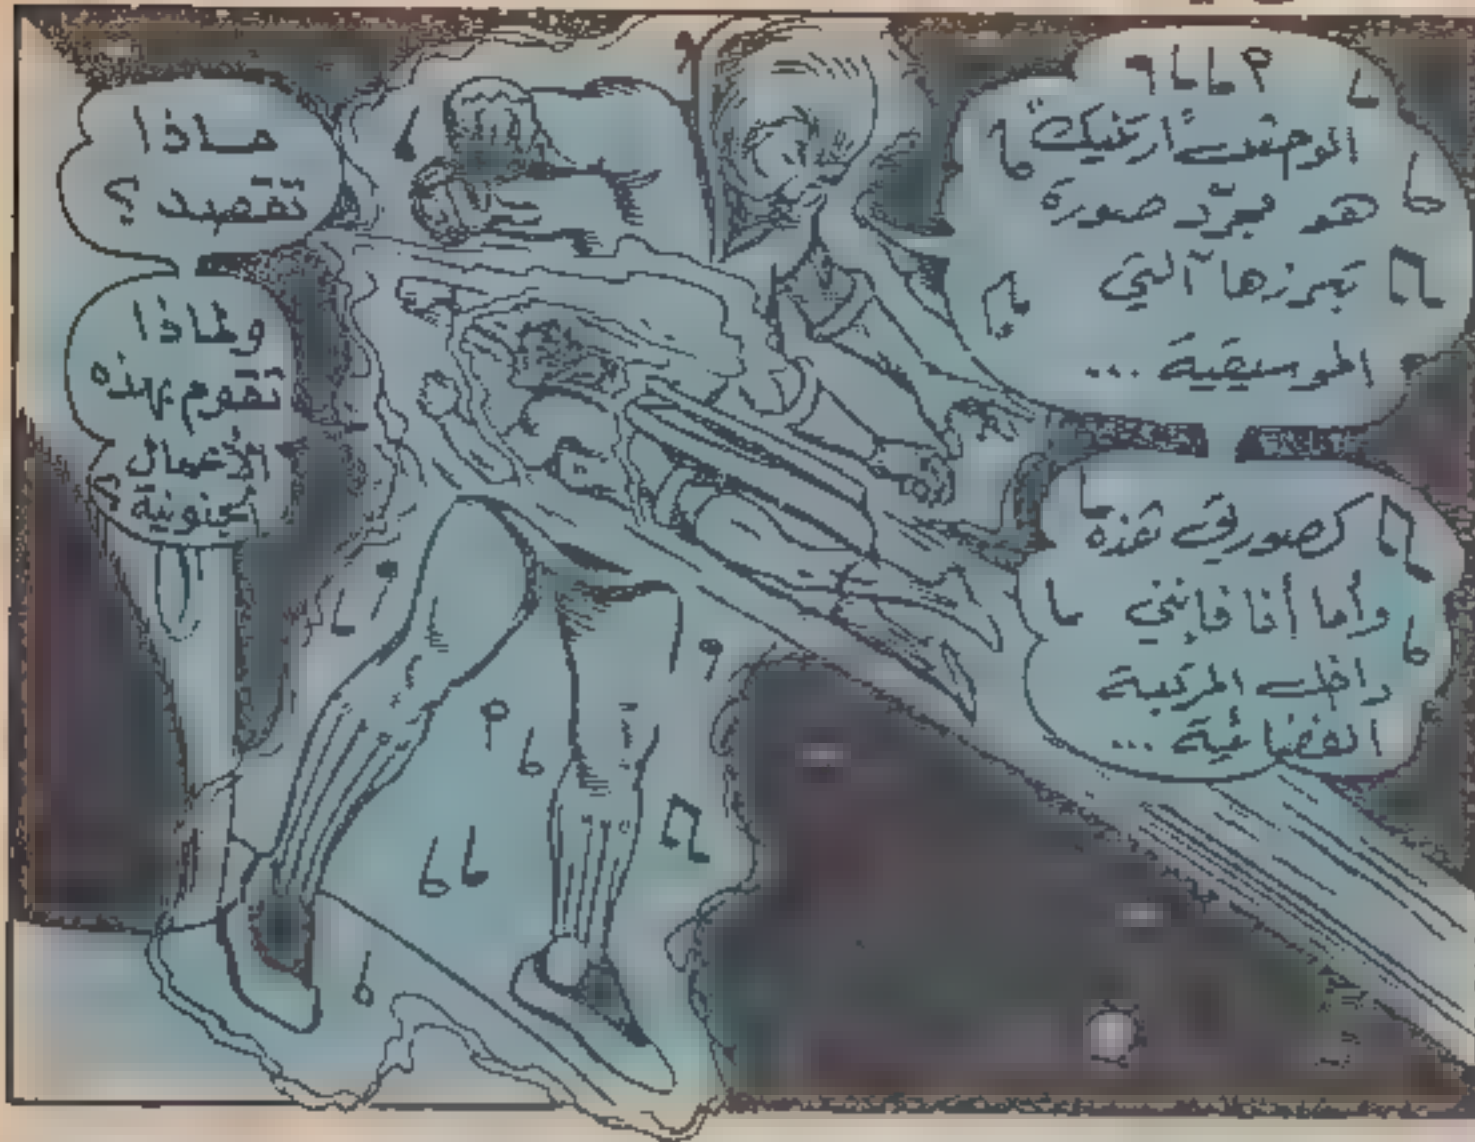 الوحش "ارتنيك"
هو مجرّد صورة
تبرزها آلتي
الموسيقية ...
كصورتي هذه
وأما أنا فإنني
داخل المركبة
الفضائية ...
ماذا
تقصد ؟
ولماذا
تقوم بهذه
الأعمال
الجنونية ؟